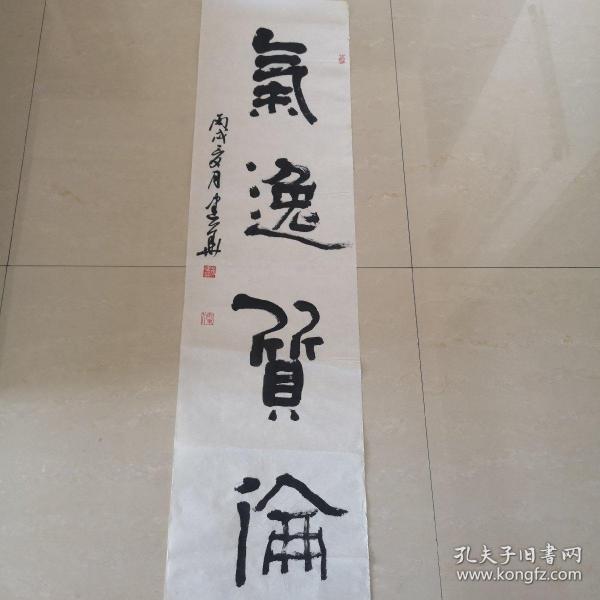 氣逸質淪
丙戌夏月建华
孔夫子旧书网
www.kongfz.com